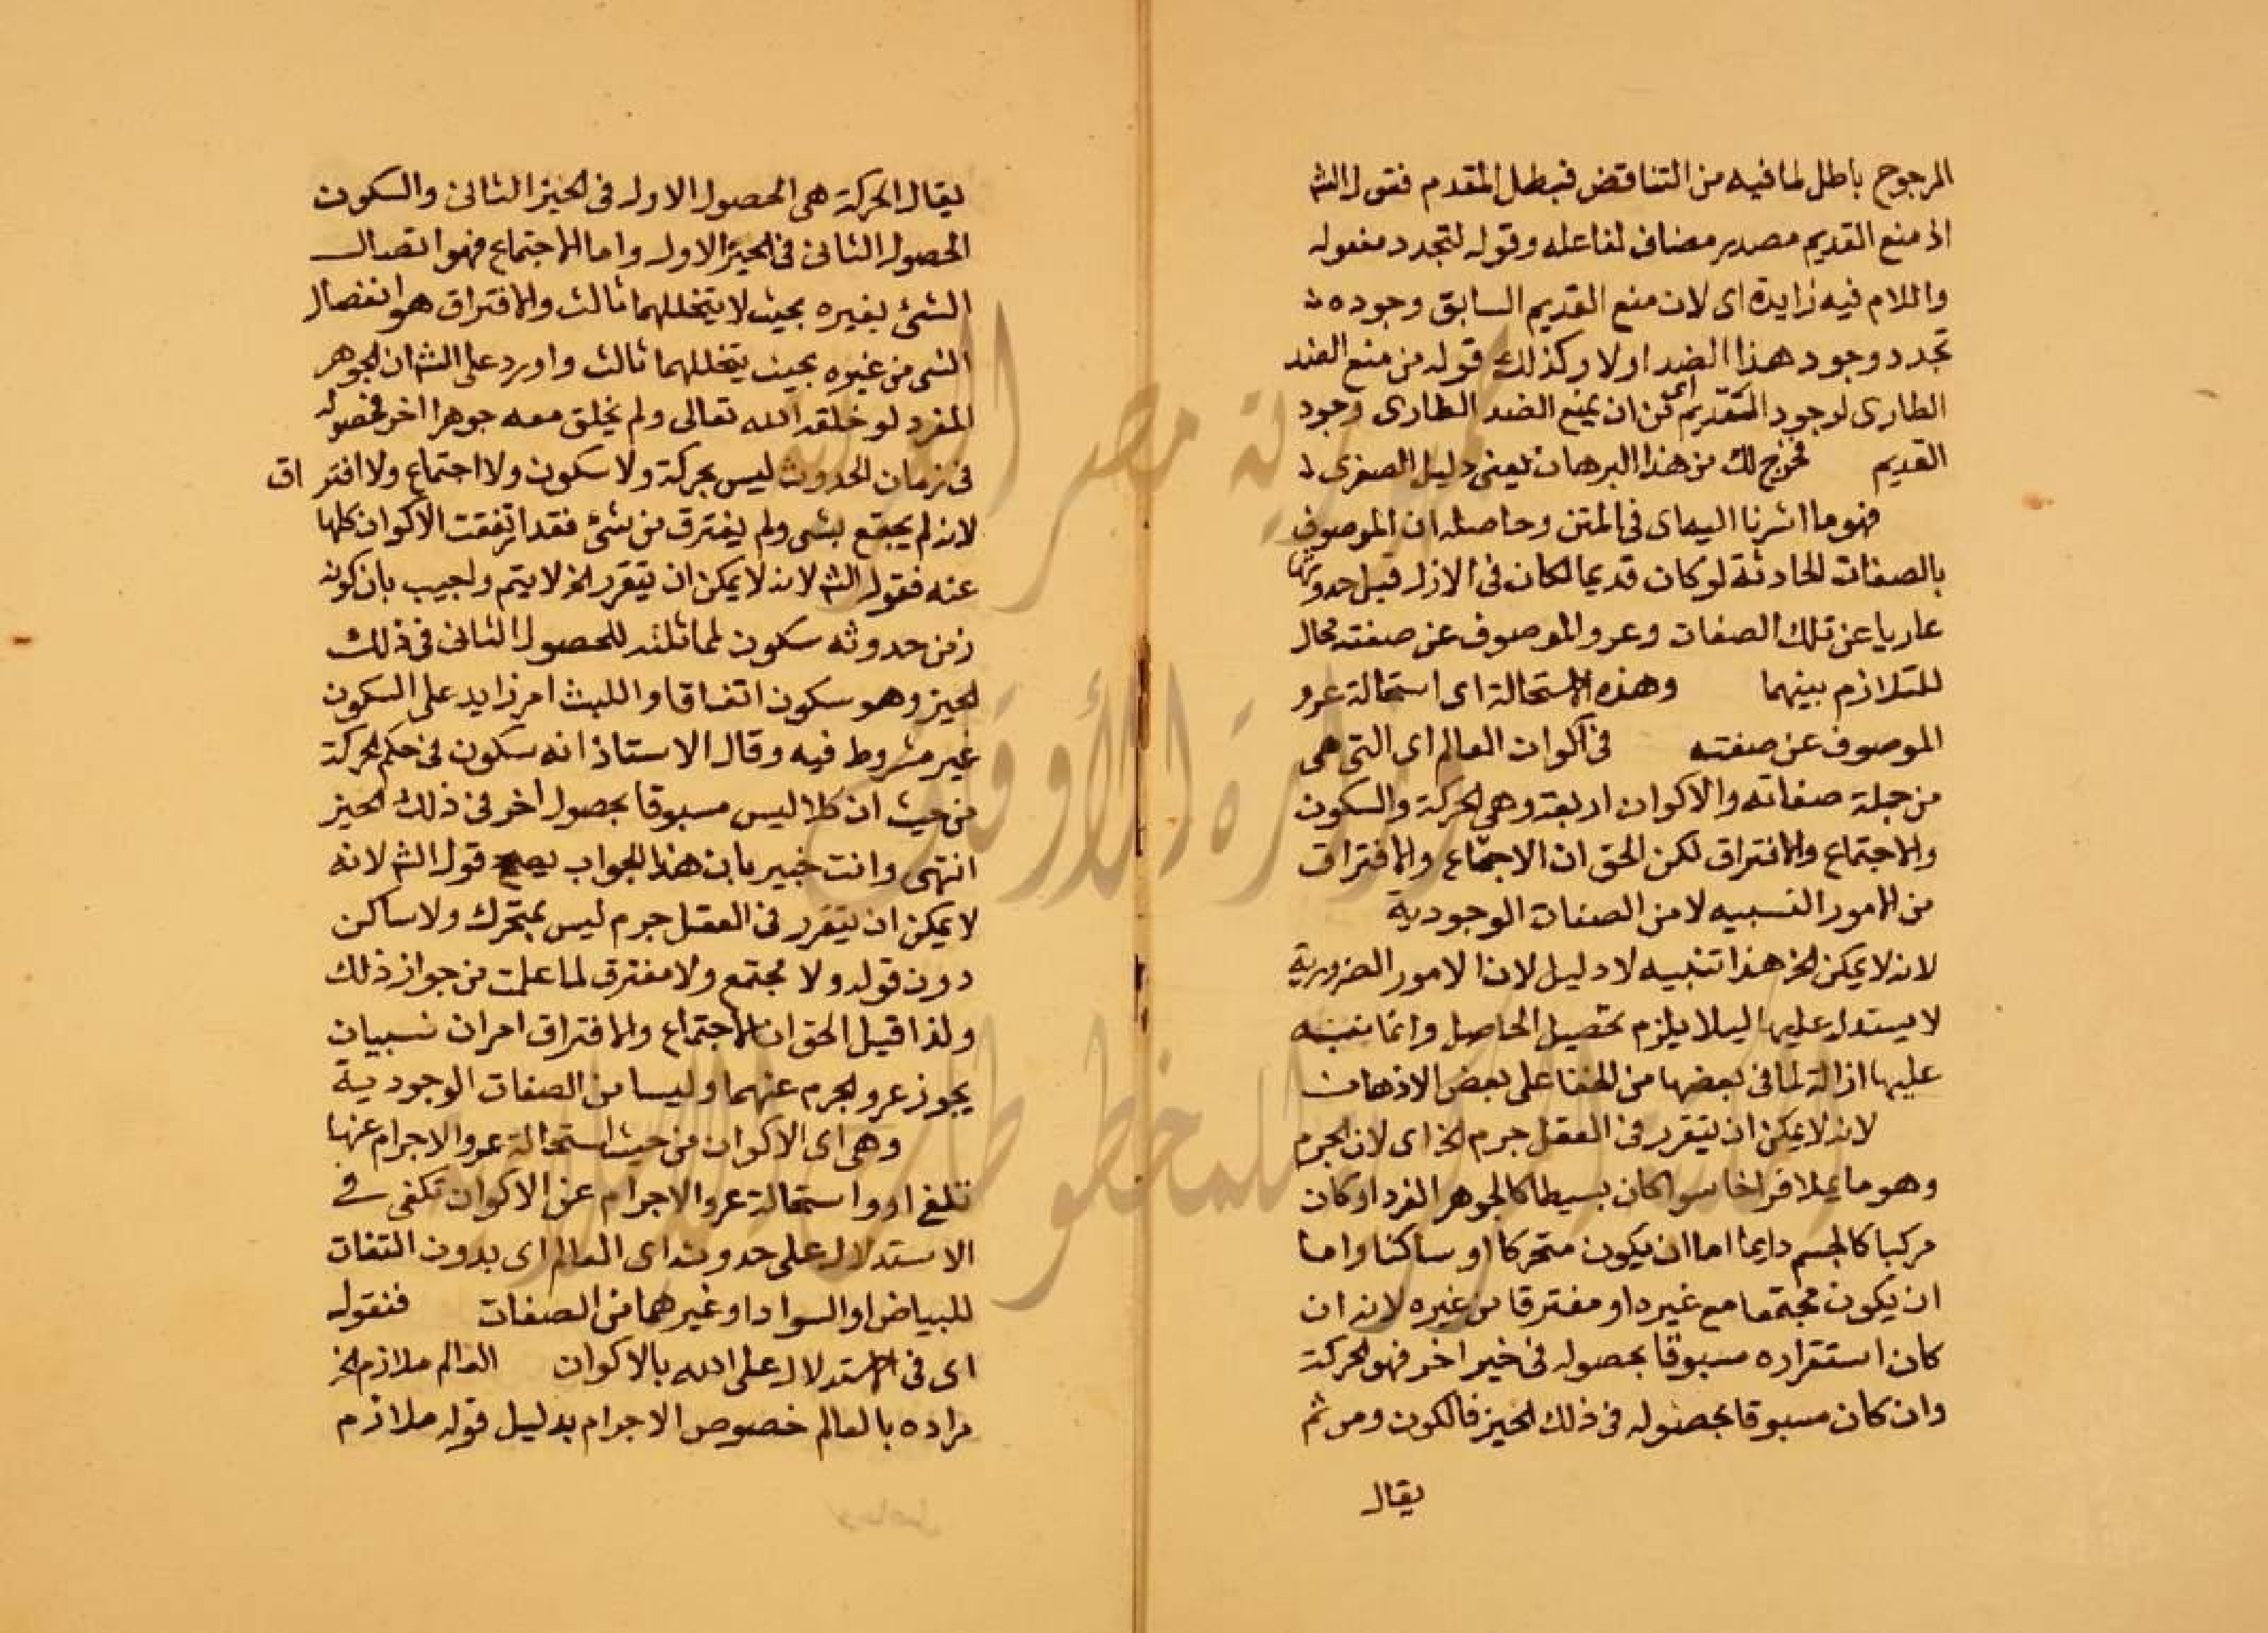 المرجوح باطل لما فيه من التناقض فبطل المقدم فقول الش
اذ منع القديم مصدر مضاف لفاعله وقوله لتجدد مفعوله
واللام فيه زايدة اى لان منع القديم السابق وجوده
تجدد وجود هذا الضد اولا وكذلك قوله من منع الضد
الطارى لوجود القديم اى من ان يمنع الضد الطارى وجود
القديم فخرج لك من هذا البرهان يعنى دليل الصغرى
فهو ما اشرنا اليه اى فى المتن وحاصله ان الموصوف
بالصفات الحادثة لو كان قديما لكان فى الازل قبل حدوثها
عاريا عن تلك الصفات وعرو الموصوف عن صفته محال
للتلازم بينهما وهذه الاستحالة اى استحالة عرو
الموصوف عن صفته فى اكوان العالم اى التى هى
من جملة صفاته والاكوان اربعة وهى الحركة والسكون
والاجتماع والافتراق لكن الحق ان الاجتماع والافتراق
من الامور النسبيه لا من الصفات الوجودية
لانه لا يمكن الخ هذا تنبيه لا دليل لان الامور الضرورية
لا يستدل عليها ليلا يلزم تحصيل الحاصل وانما ينبه
عليها ازالة لما فى بعضها من الخفا على بعض الاذهان
لانه لا يمكن ان يتقرر فى العقل جرم الخ اى لان الجرم
وهو ما يملا فراغا سوا كان بسيطا كالجوهر الفرد او كان
مركبا كالجسم دايما اما ان يكون متحركا او ساكنا واما
ان يكون مجتمعا مع غيره او مفترقا من غيره لانه ان
كان استقراره مسبوقا بحصوله فى خير اخر فهو الحركة
وان كان مسبوقا بحصوله فى ذلك الحيز فالكون ومن ثم
يقال
يقال الحركة هى الحصول الاول فى الحيز الثانى والسكون
الحصول الثانى فى الحيز الاول واما الاجتماع فهو اتصال
الشئ بغيره بحيث لا يتخللهما ثالث والافتراق هو انفصال
الشى من غيره بحيث يتخللهما ثالث واورد على الش ان الجوهر
المفرد لو خلقه الله تعالى ولم يخلق معه جوهرا اخر فحصوله
فى زمان الحدوث ليس بحركة ولا سكون ولا اجتماع ولا افتراق
لانه لم يجتمع بشى ولم يفترق من شئ فقد ارتفعت الاكوان كلها
عنه فقول الش لانه لا يمكن ان يتقرر الخ لا يتم واجيب بان كونه
زمن حدوثه سكون لمماثلته للحصول الثانى فى ذلك
الحيز وهو سكون اتفاقا واللبث امر زايد على السكون
غير مشروط فيه وقال الاستاذ انه سكون فى حكم الحركة
من حيث ان كلا ليس مسبوقا بحصول اخر فى ذلك الحيز
انتهى وانت خبير بان هذا الجواب يصحح قول الش لانه
لا يمكن ان يتقرر فى العقل جرم ليس بمتحرك ولا ساكن
دون قوله ولا مجتمع ولا مفترق لما علمت من جواز ذلك
ولذا قيل الحق ان الاجتماع والافتراق امران نسبيان
يجوز عرو الجرم عنهما وليسا من الصفات الوجودية
وهى اى الاكوان من حيث استحالة عرو الاجرام عنها
تكفى فى
الاستدلال على حدوثه اى العالم اى بدون التفات
للبياض او السواد او غيرهما من الصفات فنقوله
اى فى الاستدلال على الله بالاكوان العالم ملازم الخ
مراده بالعالم خصوص الاجرام بدليل قوله ملازم
جمهورية مصر العربية
وزارة الأوقاف